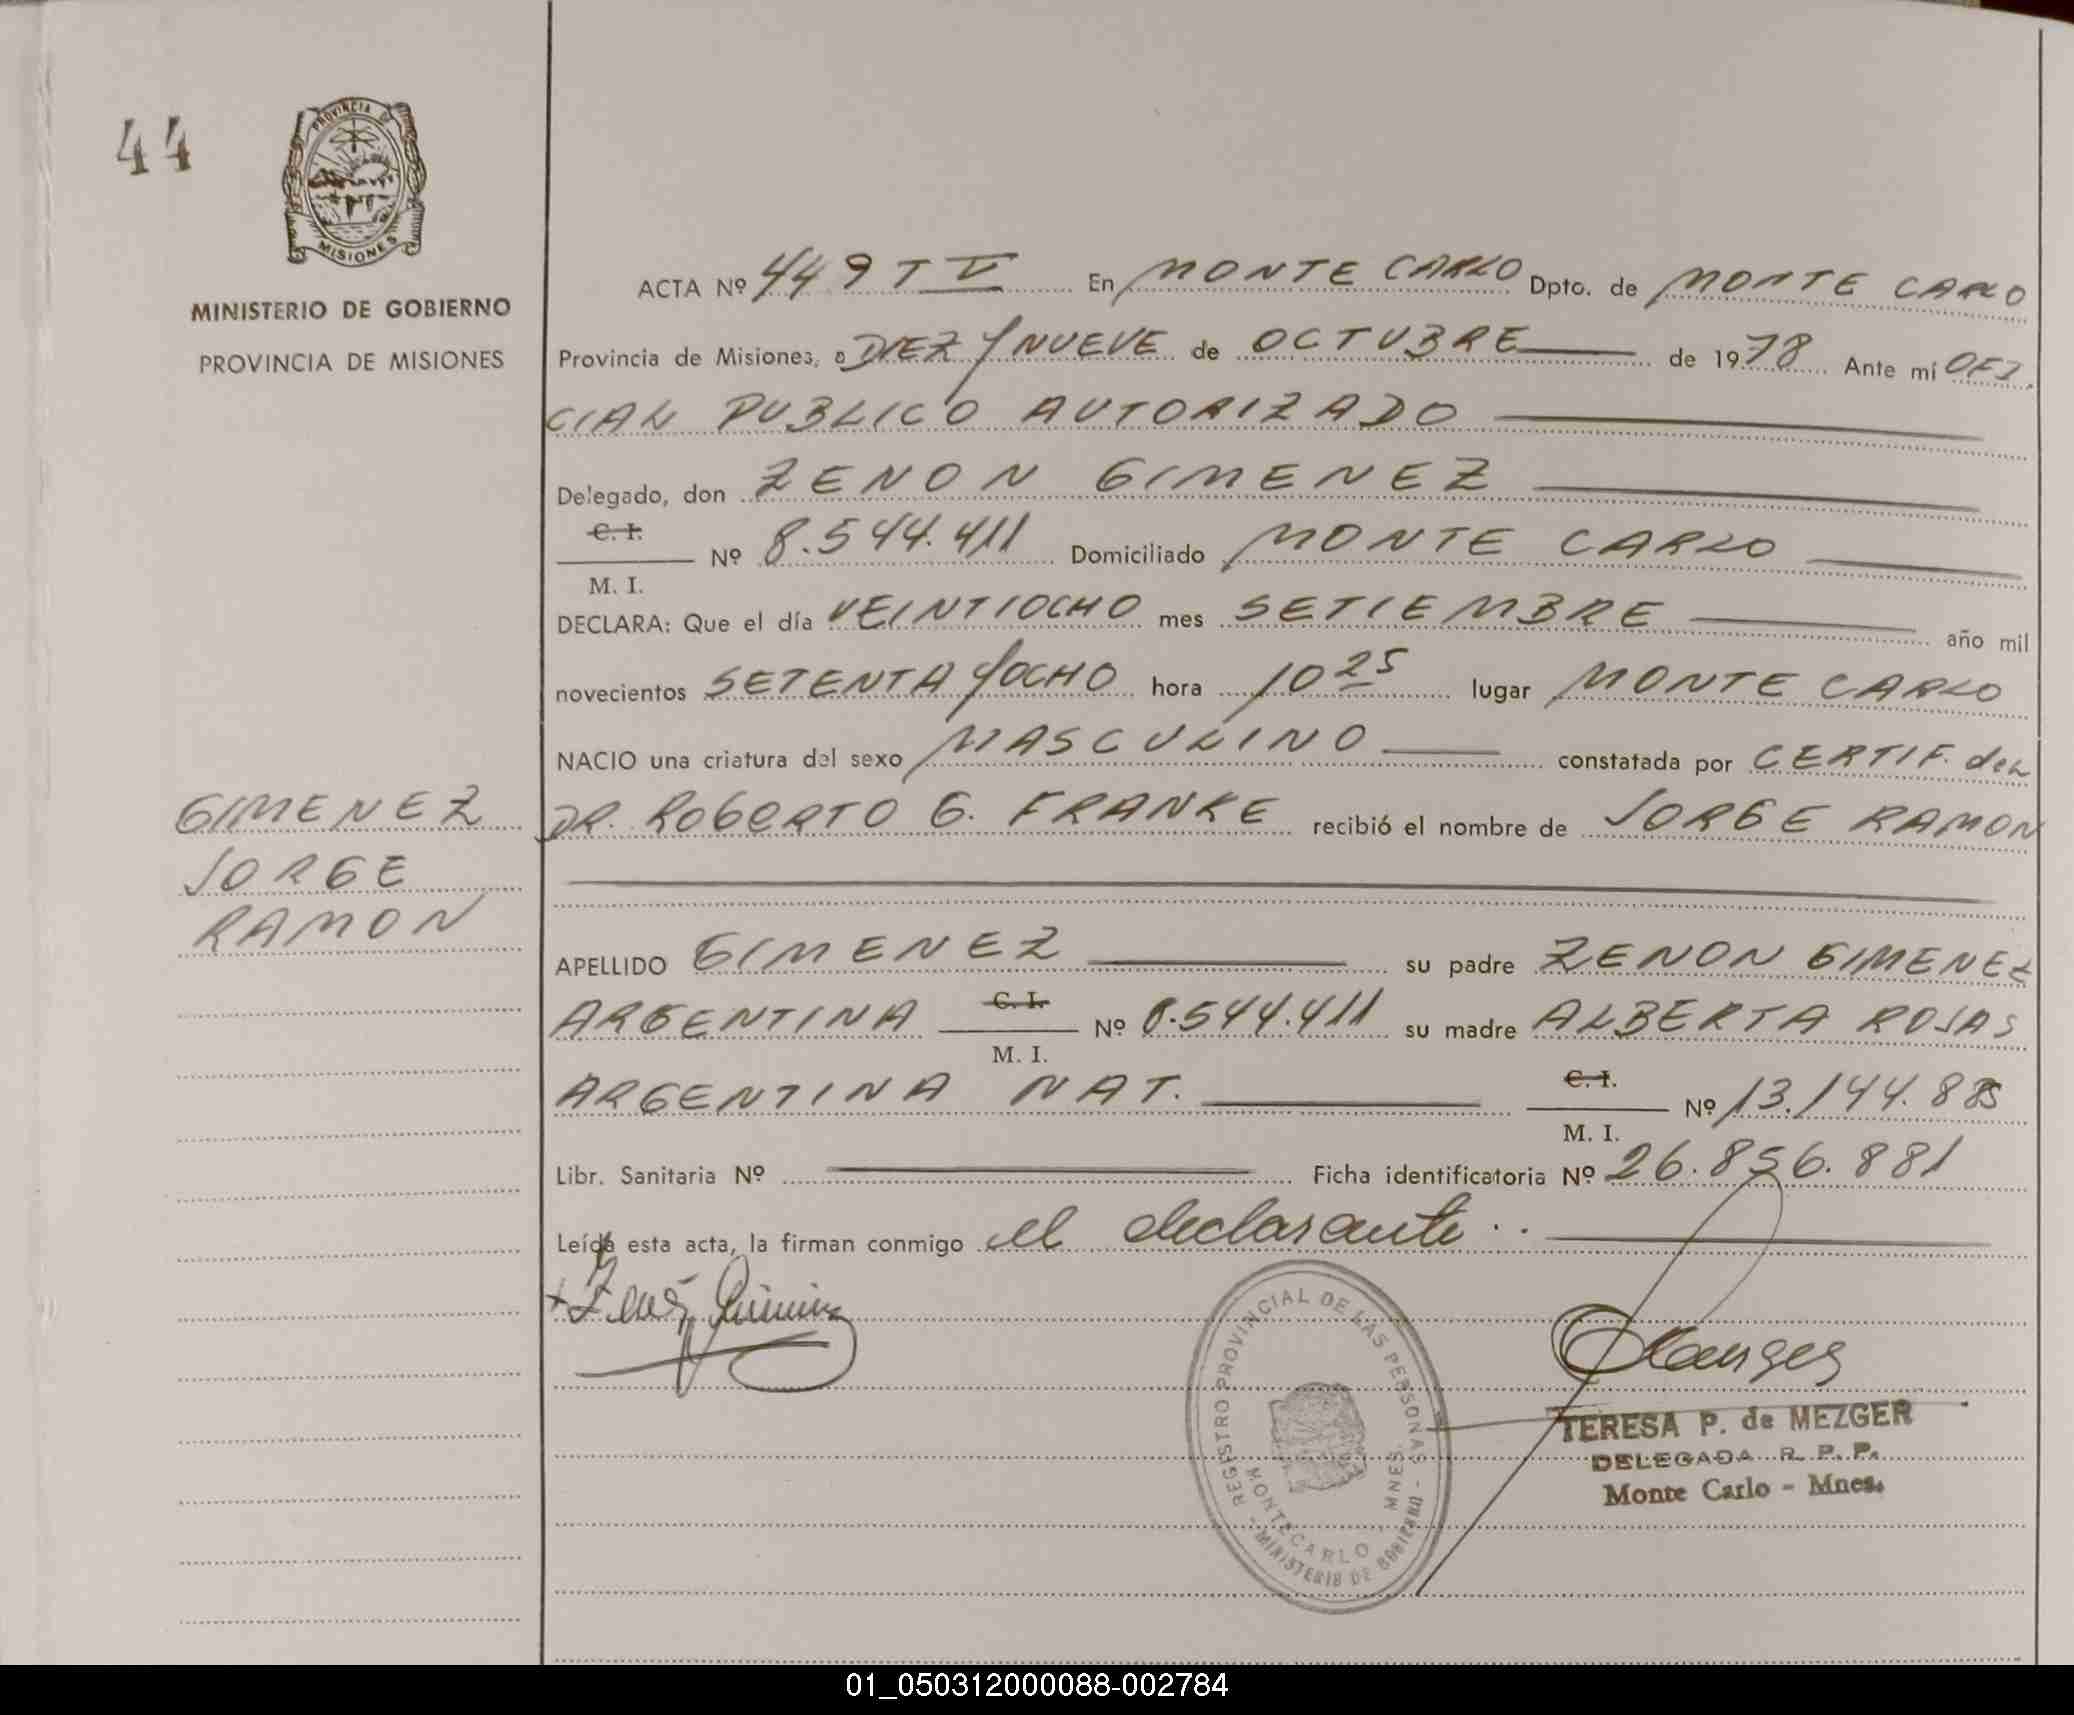 44
PROVINCIA DE
MISIONES
MINISTERIO DE GOBIERNO
PROVINCIA DE MISIONES
GIMENEZ
JORGE
RAMON
ACTA Nº 449 T V En MONTE CARLO Dpto. de MONTE CARLO
Provincia de Misiones, a DIEZ Y NUEVE de OCTUBRE de 1978 Ante mí OFI
CIAL PUBLICO AUTORIZADO
Delegado, don ZENON GIMENEZ
C. I.
M. I. Nº 8.544.411 Domiciliado MONTE CARLO
DECLARA: Que el día VEINTIOCHO mes SETIEMBRE año mil
novecientos SETENTA Y OCHO hora 10 25 lugar MONTE CARLO
NACIO una criatura del sexo MASCULINO constatada por CERTIF. del
DR. ROBERTO G. FRANKE recibió el nombre de JORGE RAMON
APELLIDO GIMENEZ su padre ZENON GIMENEZ
ARGENTINA C. I. Nº 8.544.411 su madre ALBERTA ROJAS
M. I.
ARGENTINA NAT. C. I. Nº 13.144.885
M. I.
Libr. Sanitaria Nº Ficha identificatoria Nº 26.856.881
Leída esta acta, la firman conmigo el declarante..
REGISTRO PROVINCIAL DE LAS PERSONAS - MINISTERIO DE GOBIERNO -
MONTECARLO - MNES.
TERESA P. de MEZGER
DELEGADA R. P. P.
Monte Carlo - Mnes.
01_050312000088-002784